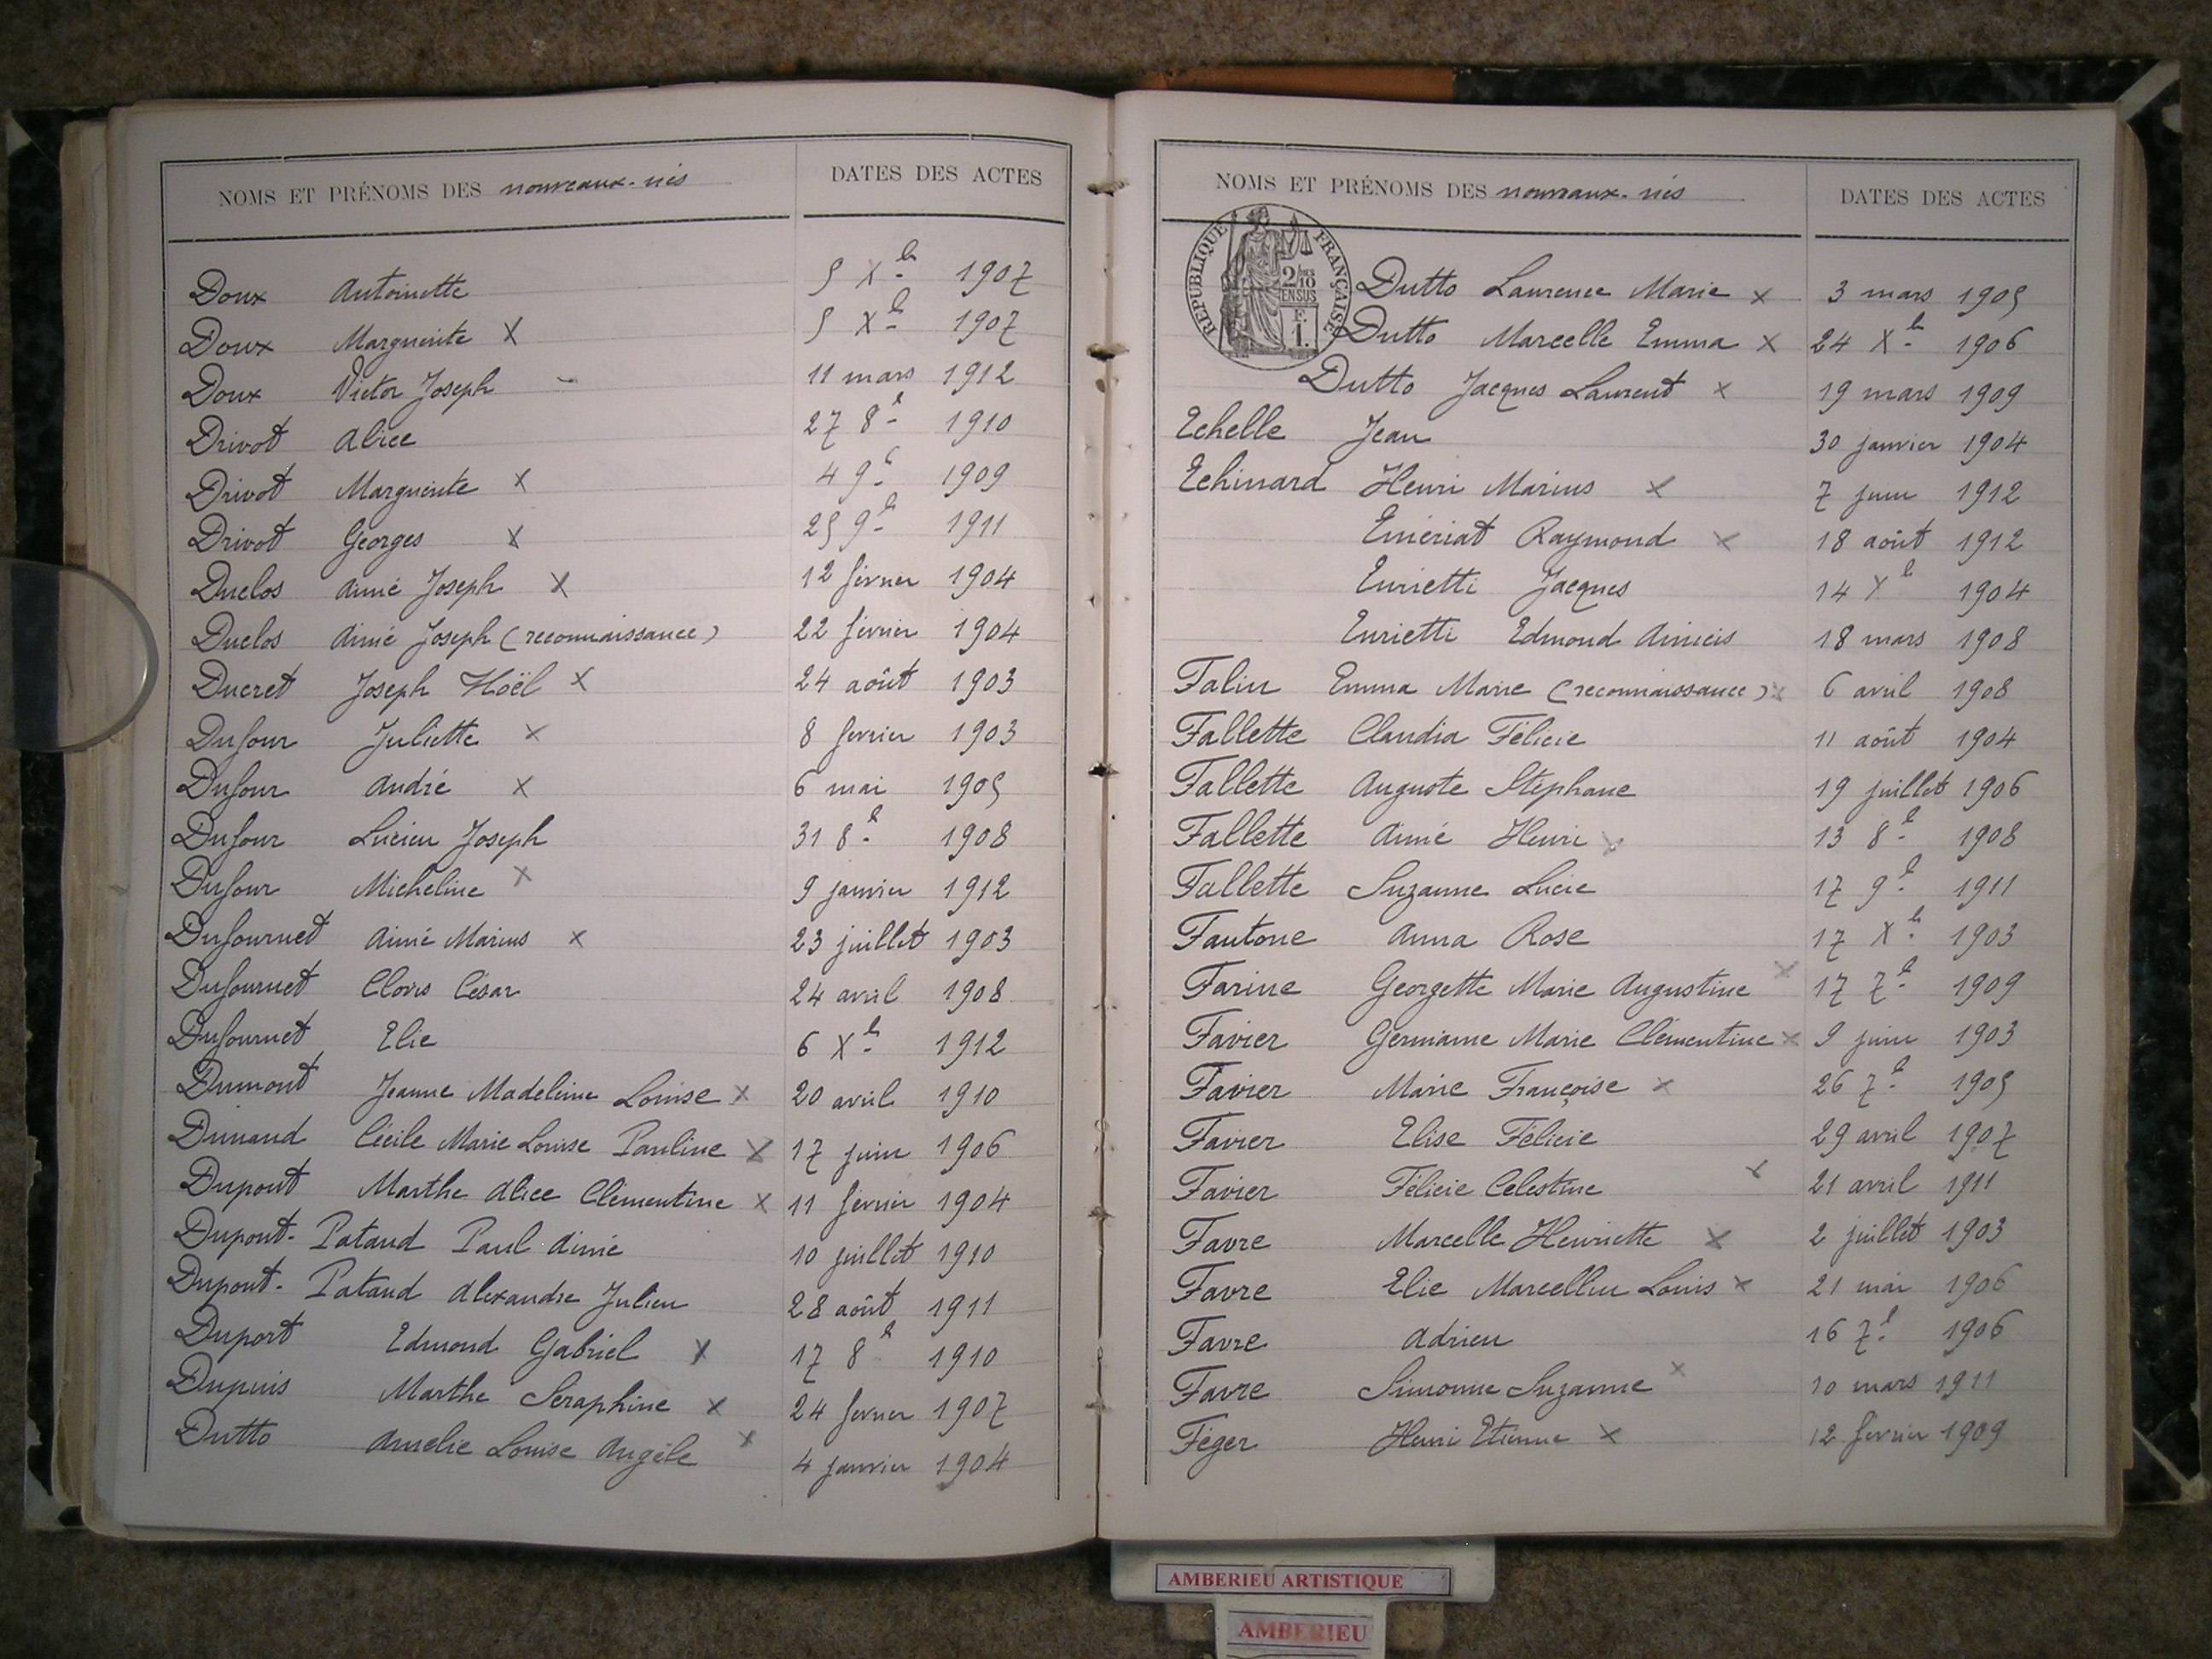 NOMS ET PRÉNOMS DES nouveaux-nés DATES DES ACTES
Doux Antoinette 5 Xbre 1907
Doux Marguerite X 5 Xbre 1907
Doux Victor Joseph - 11 mars 1912
Drivot Alice 27 8bre 1910
Drivot Marguerite X 4 9bre 1909
Drivot Georges X 25 9bre 1911
Duclos Aimé Joseph X 12 février 1904
Duclos Aimé Joseph (reconnaissance) 22 février 1904
Ducret Joseph Noël X 24 août 1903
Dufour Juliette X 8 février 1903
Dufour André X 6 mai 1905
Dufour Lucien Joseph 31 8bre 1908
Dufour Micheline X 9 janvier 1912
Dufournet Aimé Marius X 23 juillet 1903
Dufournet Clovis César 24 avril 1908
Dufournet Elie 6 Xbre 1912
Dumont Jeanne Madeleine Louise X 20 avril 1910
Dunand Cécile Marie Louise Pauline X 17 juin 1906
Dupont Marthe Alice Clémentine X 11 février 1904
Dupont-Pataud Paul Aimé 10 juillet 1910
Dupont-Pataud Alexandre Julien 28 août 1911
Duport Edmond Gabriel X 17 8bre 1910
Dupuis Marthe Séraphine X 24 février 1907
Dutto Amélie Louise Angèle X 4 janvier 1904
NOMS ET PRÉNOMS DES nouveaux-nés DATES DES ACTES
RÉPUBLIQUE FRANÇAISE
2/10
EN SUS
F.
1.
Dutto Laurence Marie X 3 mars 1905
Dutto Marcelle Emma X 24 Xbre 1906
Dutto Jacques Laurent X 19 mars 1909
Echelle Jean 30 janvier 1904
Echinard Henri Marius X 7 juin 1912
Emériat Raymond X 18 août 1912
Enrietti Jacques 14 Xbre 1904
Enrietti Edmond Amicis 18 mars 1908
Falin Emma Marie (reconnaissance) X 6 avril 1908
Fallette Claudia Félicie 11 août 1904
Fallette Auguste Stéphane 19 juillet 1906
Fallette Aimé Henri X 13 8bre 1908
Fallette Suzanne Lucie 17 9bre 1911
Fantone Anna Rose 17 Xbre 1903
Farine Georgette Marie Augustine X 17 7bre 1909
Favier Germaine Marie Clémentine X 9 juin 1903
Favier Marie Françoise X 26 7bre 1905
Favier Elise Félicie 29 avril 1907
Favier Félicie Célestine X 21 avril 1911
Favre Marcelle Henriette X 2 juillet 1903
Favre Elie Marcellin Louis X 21 mai 1906
Favre Adrien 16 7bre 1906
Favre Simonne Suzanne X 10 mars 1911
Féger Henri Etienne X 12 février 1909
AMBERIEU ARTISTIQUE
AMBERIEU